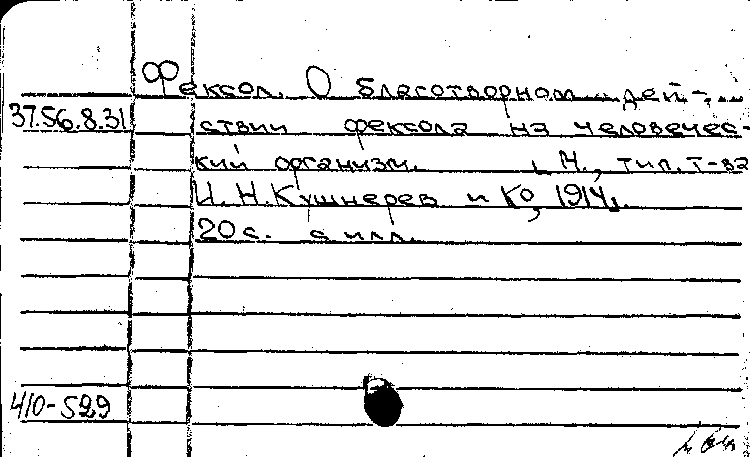 Фексол. О благотворном дей-
37.56.8.31 ствии фексола на человечес-
кий организм. М., тип. т-ва
И. Н. Кушнерев и Ко, 1914.
20 с. с илл.
410-529